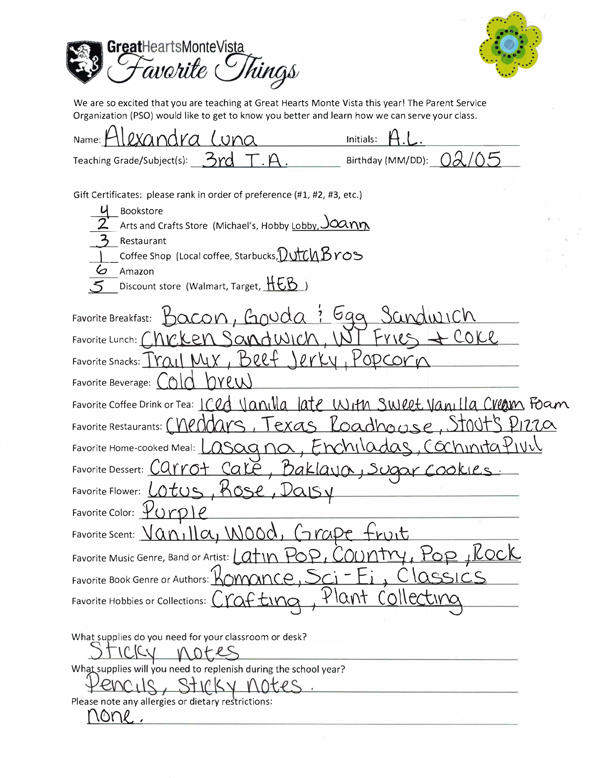 GreatHeartsMonteVista
Favorite Things
We are so excited that you are teaching at Great Hearts Monte Vista this year! The Parent Service
Organization (PSO) would like to get to know you better and learn how we can serve your class.
Name: Alexandra Luna Initials: A.L.
Teaching Grade/Subject(s): 3rd T.A. Birthday (MM/DD): 02/05
Gift Certificates: please rank in order of preference (#1, #2, #3, etc.)
4 Bookstore
2 Arts and Crafts Store (Michael's, Hobby Lobby, Joann
3 Restaurant
1 Coffee Shop (Local coffee, Starbucks, Dutch Bros
6 Amazon
5 Discount store (Walmart, Target, HEB )
Favorite Breakfast: Bacon, Gouda & Egg Sandwich
Favorite Lunch: Chicken Sandwich, W/ Fries + Coke
Favorite Snacks: Trail Mix, Beef Jerky, Popcorn
Favorite Beverage: Cold brew
Favorite Coffee Drink or Tea: Iced Vanilla late with sweet vanilla Cream Foam
Favorite Restaurants: Cheddars, Texas Roadhouse, Stout's Pizza
Favorite Home-cooked Meal: Lasagna, Enchiladas, Cochinita Pivil
Favorite Dessert: Carrot Cake, Baklava, sugar cookies.
Favorite Flower: Lotus, Rose, Daisy
Favorite Color: Purple
Favorite Scent: Vanilla, Wood, Grape fruit
Favorite Music Genre, Band or Artist: Latin Pop, Country, Pop, Rock
Favorite Book Genre or Authors: Romance, Sci-Fi, Classics
Favorite Hobbies or Collections: Crafting, Plant collecting
What supplies do you need for your classroom or desk?
Sticky notes
What supplies will you need to replenish during the school year?
Pencils, sticky notes.
Please note any allergies or dietary restrictions:
none.